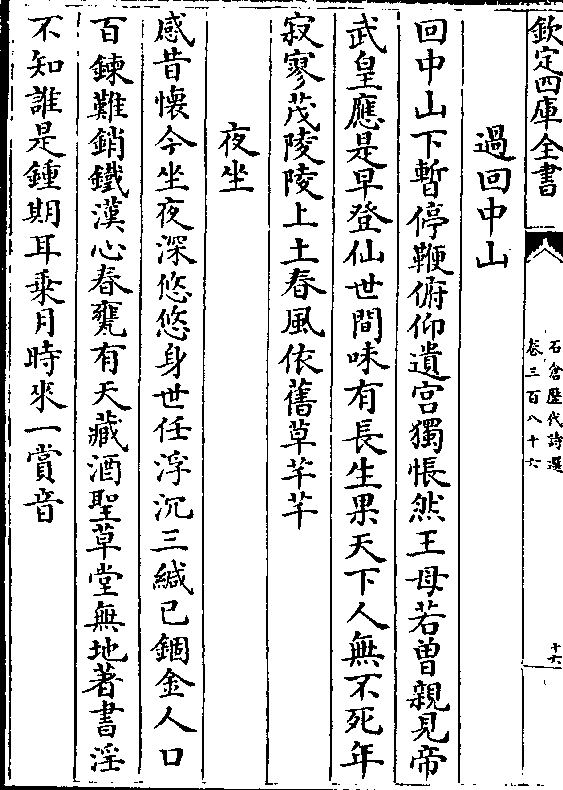 欽定四庫全書
石倉歷代詩選
卷三百八十六
十六
過回中山
回中山下暫停鞭俯仰遺宫獨悵然王母若曾親見帝
武皇應是早登仙世間味有長生果天下人無不死年
寂寥茂陵陵上土春風依舊草芊芊
夜坐
感昔懷今坐夜深悠悠身世任浮沉三緘已錮金人口
百鍊難銷鐵漢心春甕有天藏酒聖草堂無地著書淫
不知誰是鍾期耳乗月時來一賞音